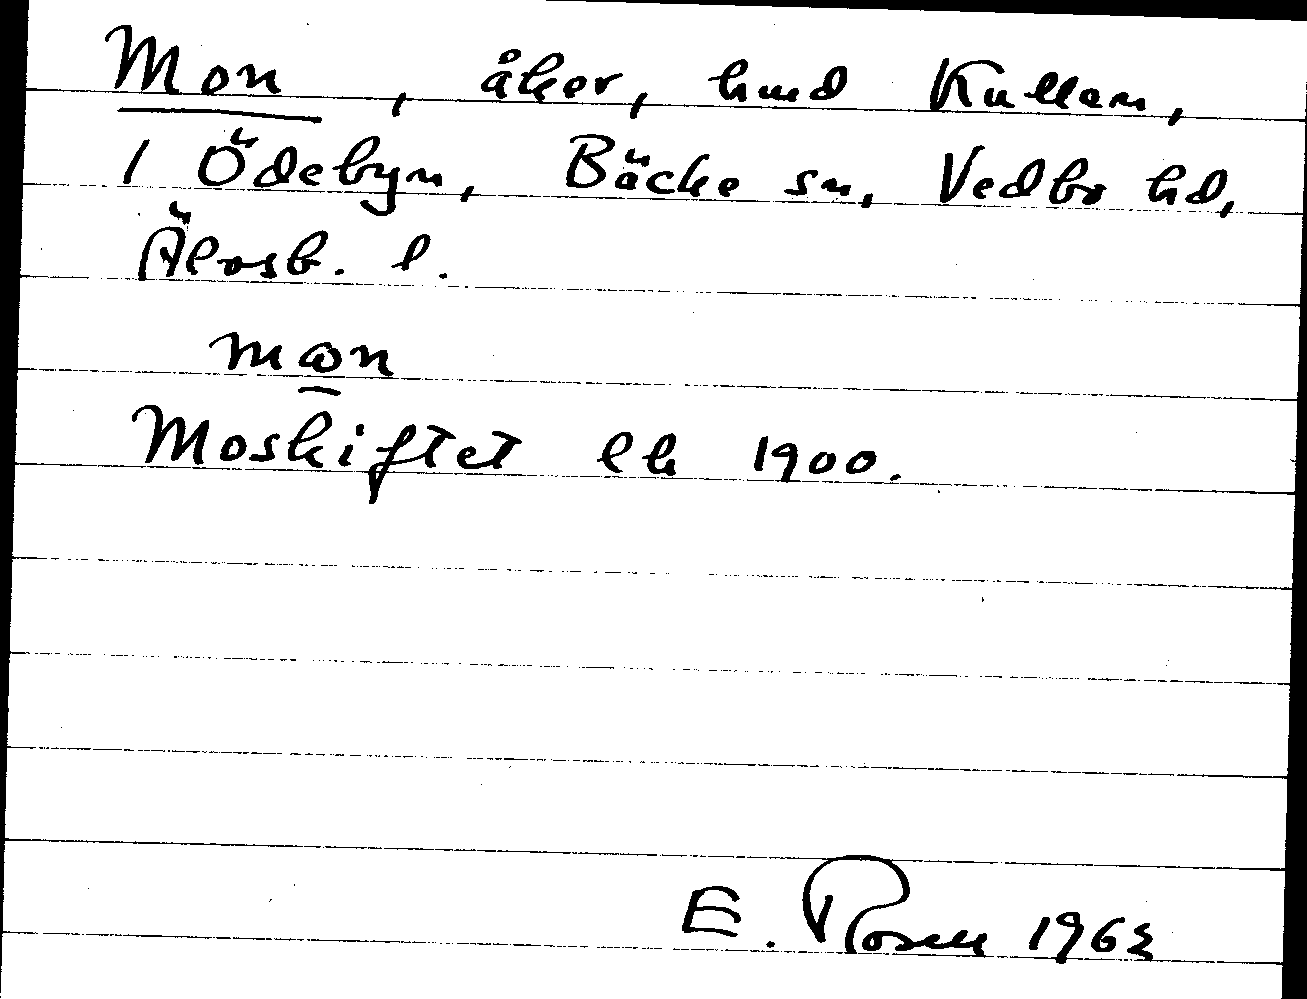 Mon, åker, hmd Kullen,
1 Ödebyn, Bäcke sn, Vedbo hd,
Älvsb. l.
mꙍn
Moskiftet lk 1900.
E. Rosell 1963